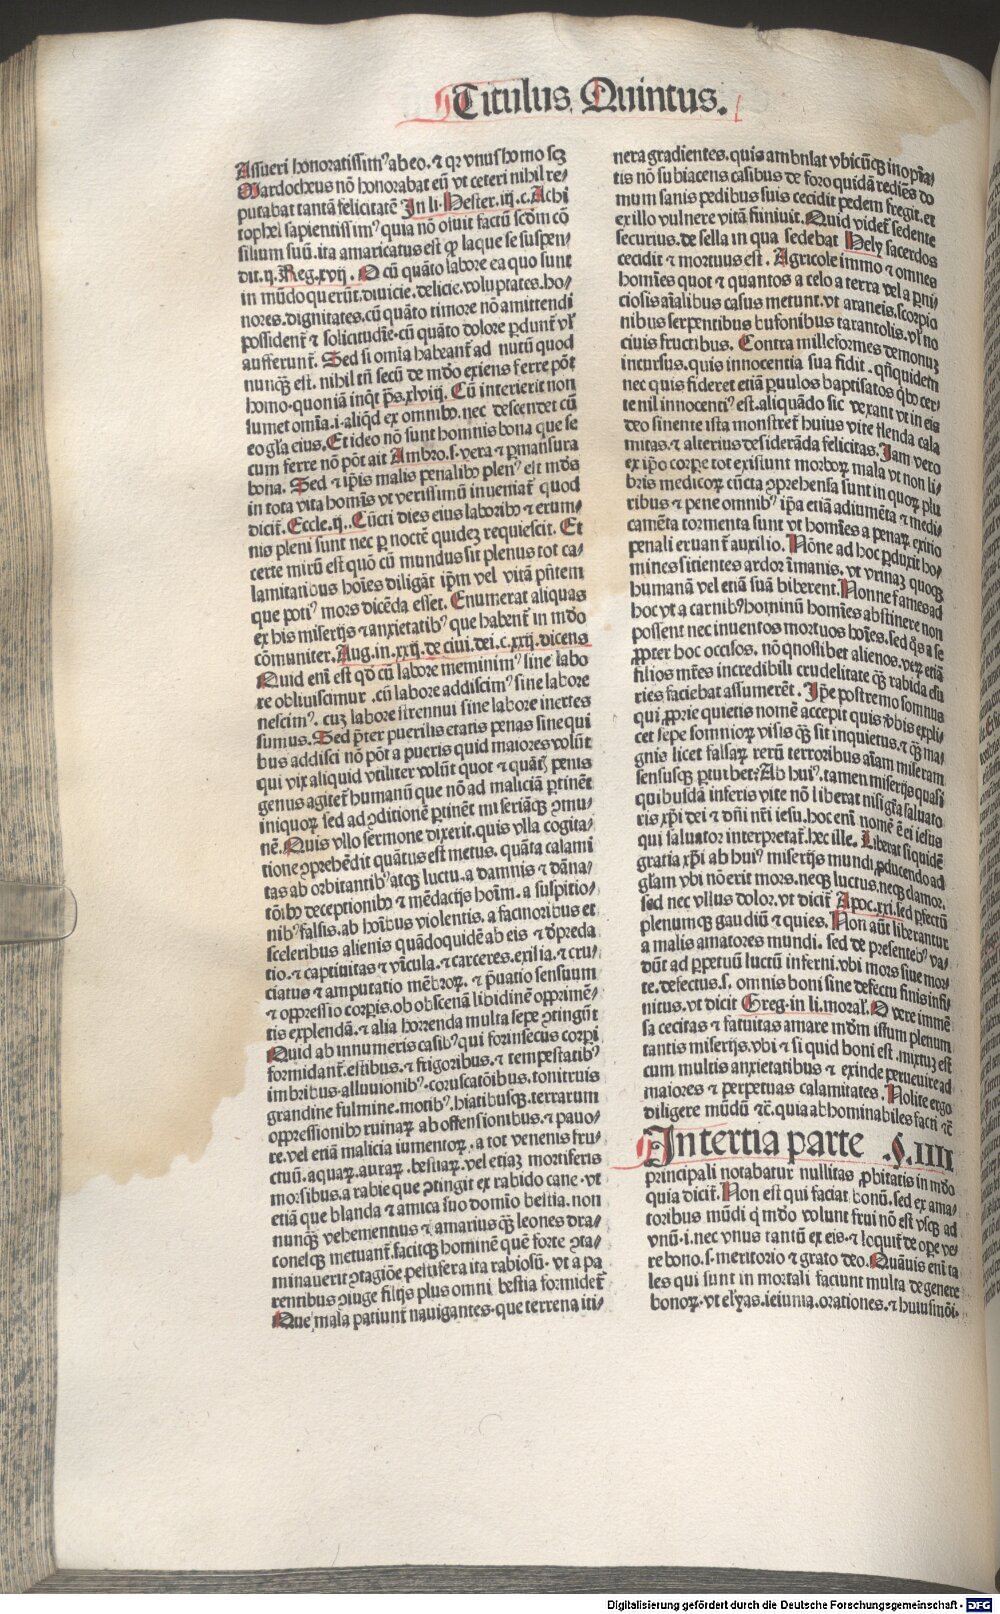 Titulus Quintus.
Assueri honoratissimꝰ ab eo. ⁊ qꝛ vnus homo scʒ
Mardocheus nō honorabat eū vt ceteri nihil re-
putabat tantā felicitatē In li. Hester. iij. c. Achi
tophel sapientissimꝰ quia nō oīuit factū scd̄m cō
silium suū. ita amaricatus est ꝙ laque se suspen-
dit. ij. Reg. xvij. O cū quāto labore ea quo sunt
in mūdo querūt. diuicie. delicie. voluptates. ho-
nores. dignitates. cū quāto timore nō amittendi
possident̄ ⁊ solicitudīe. cū quāto dolore ꝑdunt̄ vl̓
aufferunt̄. Sed si om̄ia habeant̄ ad nutū quod
nunqʒ est. nihil tn̄ secū de mūdo exiens ferre pōt
homo. quoniā inq̄t p̄s. xlviij. Cū interierit non
sumet om̄ia. i. aliq̄d ex omnibꝰ. nec descendet cū
eo gl̓a eius. Et ideo nō sunt homīnis bona que se
cum ferre nō pōt ait Ambro. s. vera ⁊ ꝑmansura
bona. Sed ⁊ ip̄is malis penalibꝰ plenꝰ est mūdꝰ
in tota vita homīs vt verissimū inueniat̄ quod
dicit̄. Eccle. ij.. Cūcti dies eius laboribꝰ ⁊ erum-
nis pleni sunt nec ꝑ noctē quideʒ requiescit. Et
certe mirū est quō cū mundus sit plenus tot ca-
lamitatibus hoīes diligāt ip̄m vel vitā p̄ntem
que potiꝰ mors dicēda esset. Enumerat aliquas
ex his miserijs ⁊ anxietatibꝰ que habent̄ in mūdo
cōmuniter. Aug. in. xxij. de ciui. dei. c. xxij. dicens
Quid eni est qd̓ cū labore meminimꝰ sine labo
re obliuiscimur. cū labore addiscimꝰ sine labore
nescimꝰ. cuʒ labore strennui sine labore inertes
sumus. Sed p̄ter puerilis etatis penas sine qui
bus addisci nō pōt a pueris quid maiores volūt
qui vix aliquid vtiliter volūt quot ⁊ quātꝭ penis
genus agitet̄ humanū que nō ad maliciā ꝑtinēt
iniquoꝝ sed ad ꝯditionē ꝑtinēt miseriāqʒ ꝯmu-
nē. Quis vllo sermone dixerit. quis vlla cogita-
tione ꝯprehēdit quātus est metus. quāta calami
tas ab orbitantibꝰ atqʒ luctu. a damnis ⁊ dāna-
tōibꝰ deceptionibꝰ ⁊ mēdacijs hoīm. a suspitio-
nibꝰ falsis. ab hoībus violentis. a facinoribus et
sceleribus alienis quādoquidē ab eis ⁊ dꝑreda
tio. ⁊ captiuitas ⁊ vīcula. ⁊ carceres. exilia. ⁊ cru-
ciatus ⁊ amputatio mēbroꝝ. ⁊ p̄uatio sensuum
⁊ oppressio corꝑis. ob obscenā libidinē opprimē-
tis explendā. ⁊ alia horrenda multa sepe ꝯtingūt
Quid ab innumeris casibꝰ qui forinsecus corpi
formidant̄. estibus. ⁊ frigoribus. ⁊ tempestatibꝰ
imbribus. alluuionibꝰ. coruscatōibus. tonitruis
grandine fulmine. motibꝰ. hiatibusqʒ. terrarum
oppressionibꝰ ruinaꝝ ab offensionibus. ⁊ pauo-
re. vel etiā malicia iumentoꝝ. a tot venenis fru-
ctuū. aquaꝝ. auraꝝ. bestiaꝝ. vel etiaʒ mortiferis
morsibus. a rabie que ꝯtingit ex rabido cane. vt
etiā que blanda ⁊ amica suo domīo bestia. non
nunqʒ vehementius ⁊ amarius qʒ leones dra-
conesqʒ metuant̄. facitqʒ hominē quē forte ꝯta-
minauerit ꝯtagiōe pestifera ita rabiosū. vt a pa
rentibus ꝯiuge filijs plus omni bestia formidet̄
Que mala patiunt̄ nauigantes. que terrena iti-
nera gradientes. quis ambulat vbicūqʒ inopīa-
tis nō subiacens casibus de foro quidā rediēs do
mum sanis pedibus suis cecidit pedem fregit. et
ex illo vulnere vitā finiuit. Quid videt̄ sedente
securius. de sella in qua sedebat Hely sacerdos
cecidit ⁊ mortuus est. Agricole immo ⁊ omnes
homīes quot ⁊ quantos a celo a terra vel a ꝑni-
ciosis aīalibus casus metunt. vt araneis. scorpio
nibus serpentibus bufonibus tarantolis. vl̓ no
ciuis fructibus. Contra milleformes demonuʒ
incursus. quis innocentia sua fidit. qn̄quidem
nec quis fideret etiā ꝑuulos baptisatos qͥbꝰ cer-
te nil innocentiꝰ est. aliquādo sic vexant vt in eis
deo sinente ista monstret̄ huius vite flenda cala
mitas. ⁊ alterius desiderāda felicitas. Iam vero
ex ip̄o corꝑe tot existunt morboꝝ mala vt non li-
bris medicoꝝ cūcta ꝯprehensa sunt in quoꝝ plu
ribus ⁊ pene omnibꝰ ip̄a etiā adiumēta ⁊ medi-
camēta tormenta sunt vt homīes a penaꝝ exitio
penali eruant̄ auxilio. Nōne ad hoc ꝑduxit ho-
mines sitientes ardor īmanis. vt vrinaʒ quoqʒ
humanā vel etiā suā biberent. Nonne fames ad
hoc vt a carnibꝰ hominū homīes abstinere non
possent nec inuentos mortuos hoīes. sed qͦs a se
ꝓpter hoc occisos. nō qͦslibet alienos. veꝝ etiā
filios mr̄es incredibili crudelitate qʒ rabida esu
ries faciebat assumerēt. Ip̄e postremo somnus
qui ꝓprie quietis nomē accepit quis vb̓is expli-
cet sepe somnioꝝ visis qʒ sit inquietus. ⁊ qʒ ma-
gnis licet falsaꝝ rerū terroribus aīam miseram
sensusqʒ ꝑturbet? Ab huiꝰ. tamen miserijs quasi
quibusdā inferis vite nō liberat nisi gr̄a saluato
ris xp̄i dei ⁊ dn̄i nr̄i iesu. hoc enī nomē ē ei iesus
qui saluator interpretat̄. hec ille. Liberat siquidē
gratia xp̄i ab huiꝰ miserijs mundi ꝓducendo ad
gl̓am vbi nō erit mors. neqʒ luctus. neqʒ clamor.
sed nec vllus dolor. vt dicit̄ Apoc. xxi. sed ꝑfectū
plenumqʒ gaudiū ⁊ quies. Non aūt liberantur
a malis amatores mundi. sed de presentebꝰ va-
dūt ad ꝑpetuū luctū inferni. vbi mors siue mor-
te. defectus. s. omnis boni sine defectu finis infi-
nitus. vt dicit Greg. in li. moral̓. O vere immē
sa cecitas ⁊ fatuitas amare mūdm istum plenum
tantis miserijs. vbi ⁊ si quid boni est. mixtuʒ est
cum multis anxietatibus ⁊ exinde peruenire ad
maiores ⁊ perpetuas calamitates. Nolite ergo
diligere mūdū ⁊c̄. quia abhominabiles facti ⁊c̄
In tertia parte .§. IIII
principali notabatur nullitas ꝓbitatis in mūdo
quia dicit̄. Non est qui faciat bonū. sed ex ama-
toribus mūdi q̇ mūdo volunt frui nō est vsqʒ ad
vnū. i. nec vnus tantū ex eis. ⁊ loquit̄ de oꝑe ve-
re bono. s. meritorio ⁊ grato deo. Quāuis enī ta
les qui sunt in mortali faciunt multa de genere
bonoꝝ. vt elyas. ieiunia. orationes. ⁊ huiusmōi.
Digitalisierung gefördert durch die Deutsche Forschungsgemeinschaft - DFG